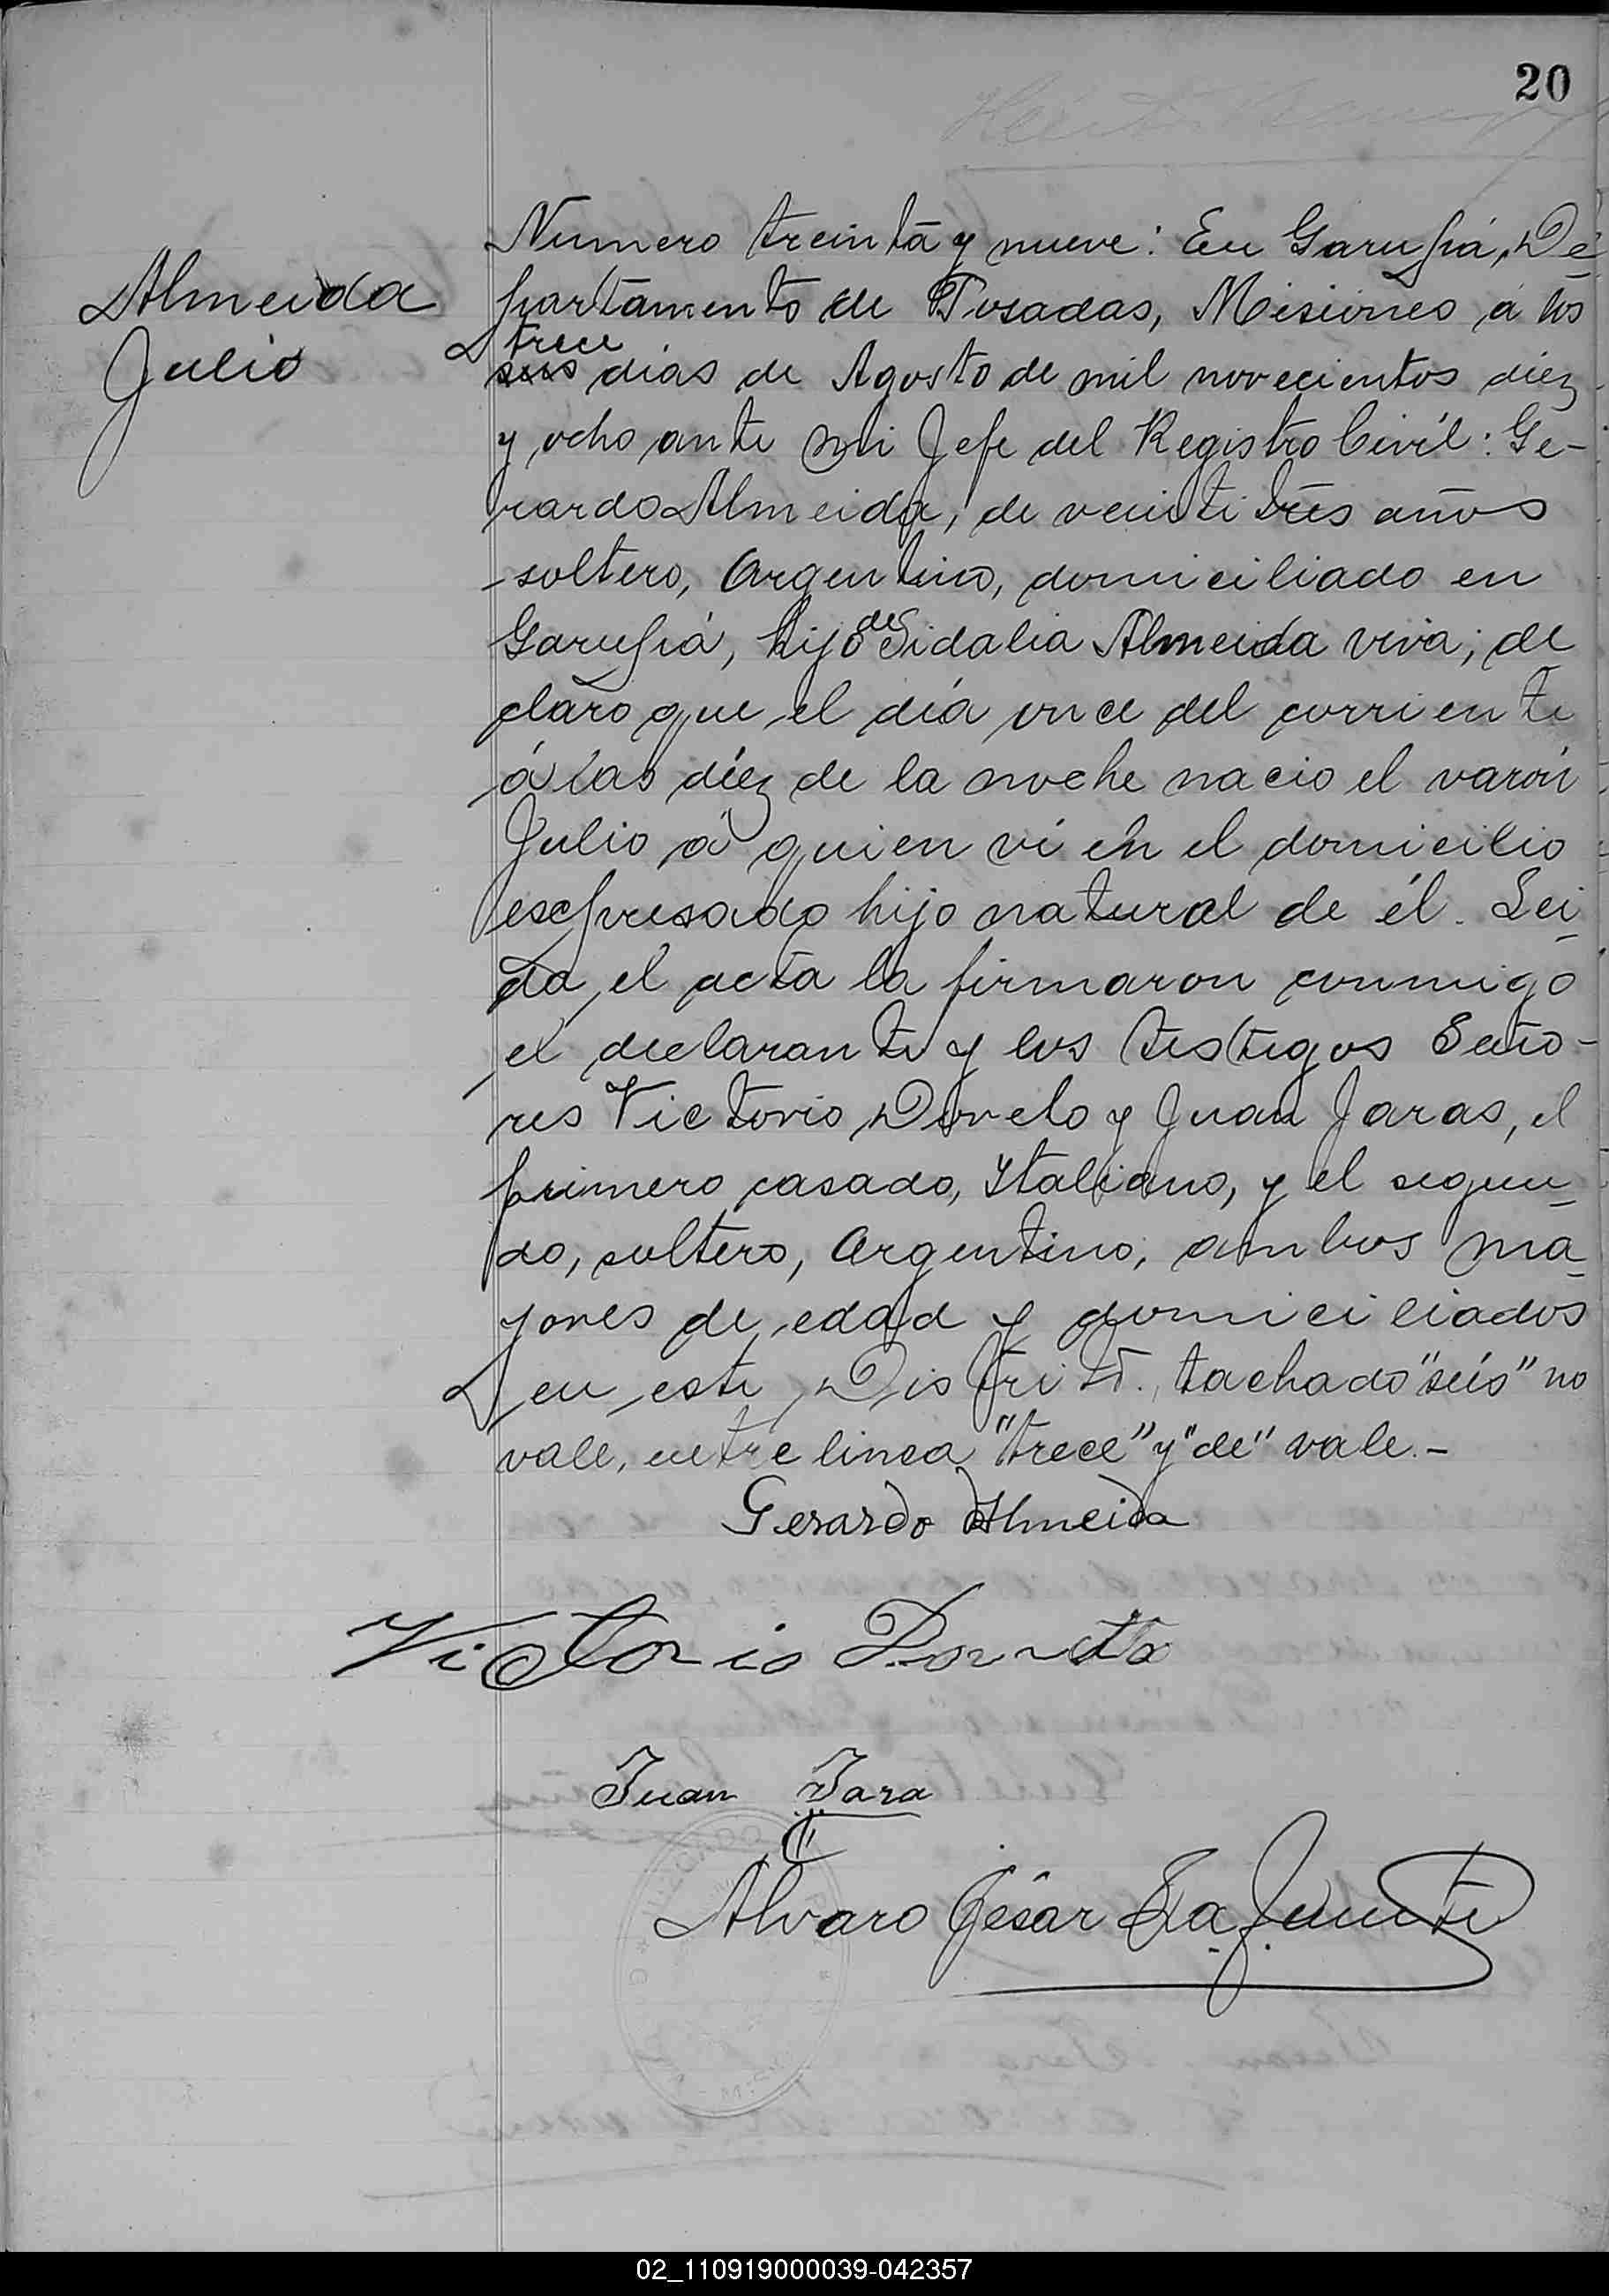 20
Almeida
Julio
Numero treinta y nueve: En Garupá, De-
partamento de Posadas, Misiones á los
trece
seis dias de Agosto de mil novecientos diez
y ocho ante mi Jefe del Registro Civil: Ge-
rardo Almeida, de veintitres años
soltero, Argentino, domiciliado en
Garupá, hijo de Sidalia Almeida viva; de
claro que el día once del corriente
á las diéz de la noche nacio el varón
Julio á quien ví en el domicilio
espresado hijo natural de él. Lei-
da el acta la firmaron conmigo
el declarante y los testigos Seño-
res Victorio y Juan Jaras, el
primero casado, Italiano, y el segun-
do, soltero, Argentino, ambos ma-
yores de edad y domiciliados
en este Distrito., tachado "seis" no
vale, entre linea "trece" y "de" vale.-
Gerardo Almeida
Victorio
Juan Jara
Alvaro César La Fuente
02_110919000039-042357